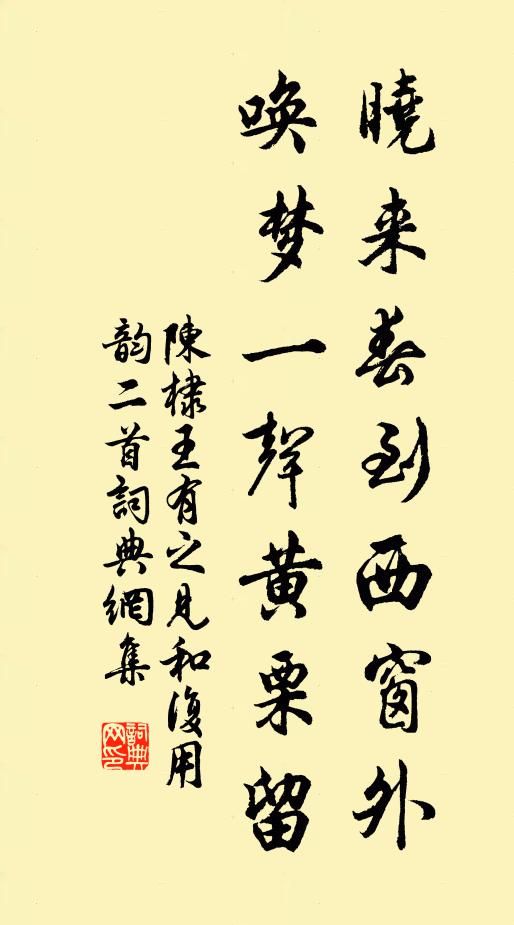 曉来春到西窗外
唤梦一聲黄栗留
陳棣王有之見和復用
韵二首詞典網集
詞典
网印